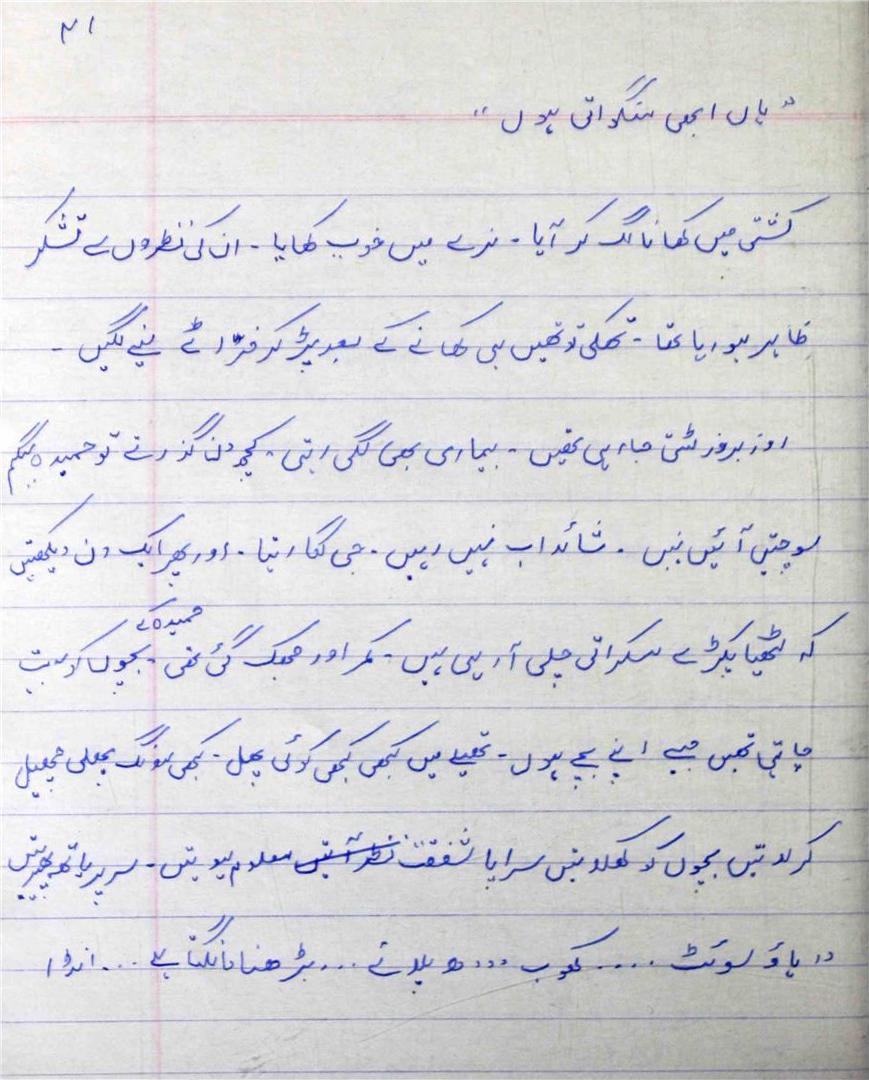 ۲۱
"ہاں ابھی منگواتی ہوں"
کشتی میں کھانا لگ کر آیا - مزے میں خوب کھایا - ان کی نظروں سے تشکر
ظاہر ہو رہا تھا - تھکی تو تھیں ہی کھانے کے بعد پڑ کر خرّاٹے لینے لگیں -
روز بروز لٹتی جا رہی تھیں - بیماری بھی لگی رہتی - کچھ دن گذرتے تو حمیدہ بیگم
سوچتیں آئیں نہیں - شائد اب نہیں رہیں - جی لگا رہتا - اور پھر ایک دن دیکھتیں
کہ لٹھیا پکڑے مسکراتی چلی آ رہی ہیں - کمر اور جھک گئی تھی - حمیدہ کے بچوں کو بہت
چاہتی تھیں جیسے اپنے بچے ہوں - تھیلے میں کبھی کبھی کوئی پھل - کبھی مونگ پھلی چھیل
کر لاتیں بچوں کو کھلاتیں سراپا شفقت نظر آتیں معلوم ہوتیں - سر پر ہاتھ پھیرتیں
"ہاؤ سوئٹ .... کھوب دودھ پلاتے ... بڑھنا مانگتا ہے ... انڈا